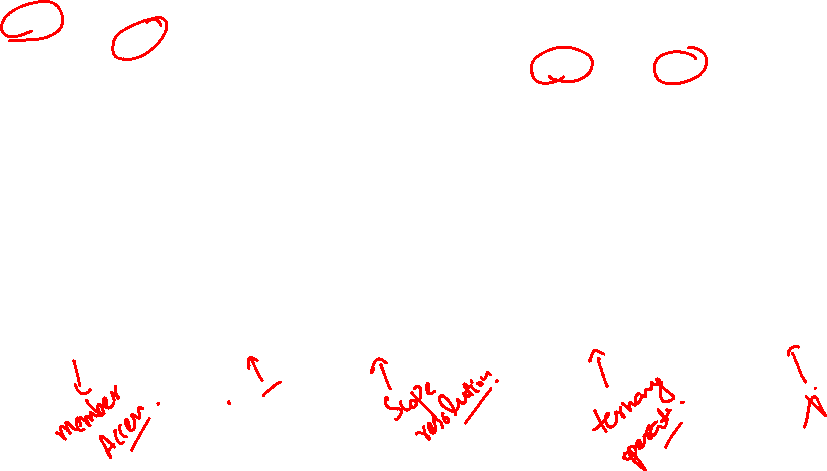 member
Access.
Scope
resolution.
ternary
operator.